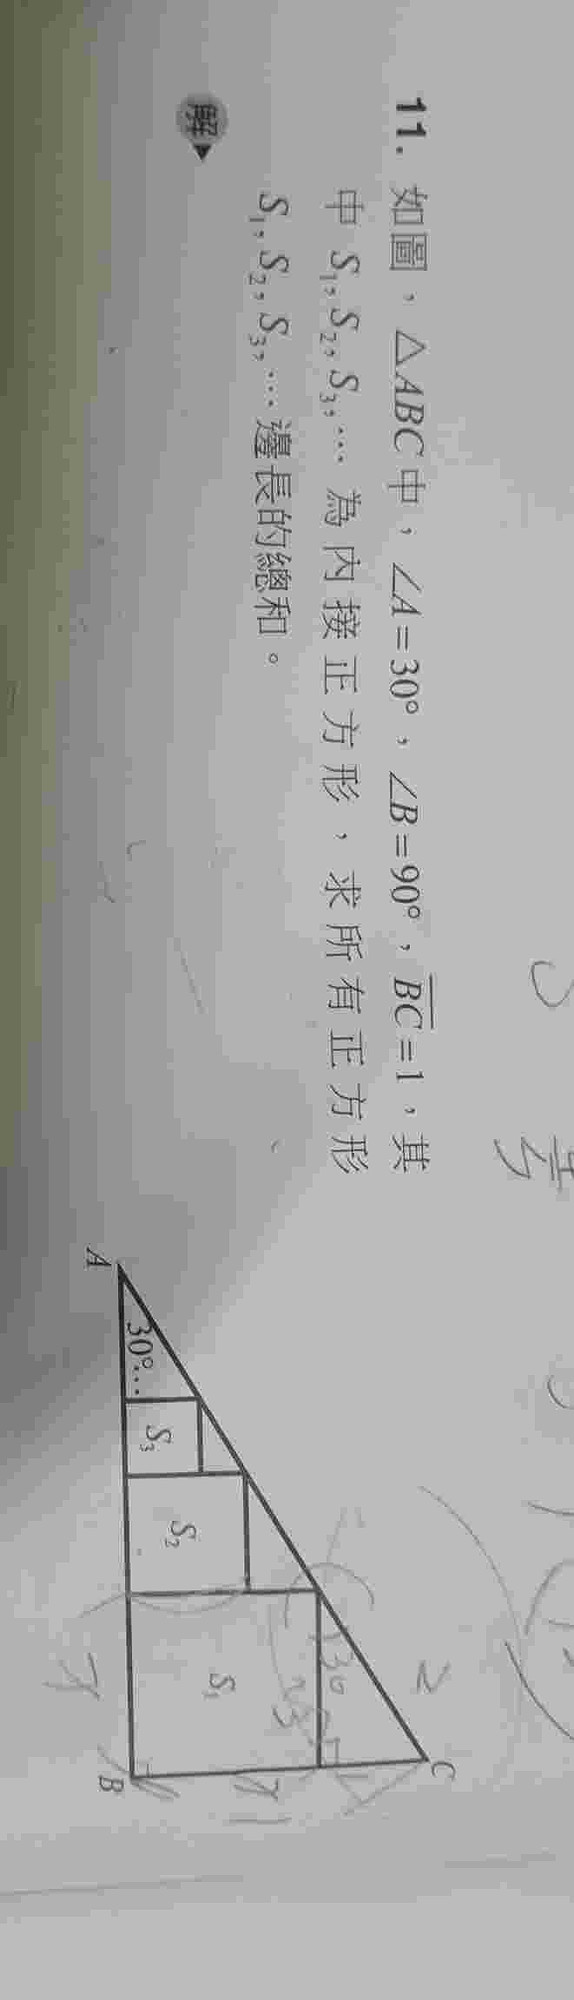 11. 如圖，△ABC中，∠A=30°，∠B=90°，B̅C̅=1，其
中 S₁, S₂, S₃, … 為內接正方形，求所有正方形
S₁, S₂, S₃, … 邊長的總和。
解
C
2
30
1
S₁
S₂
S₃
30°…
A
B